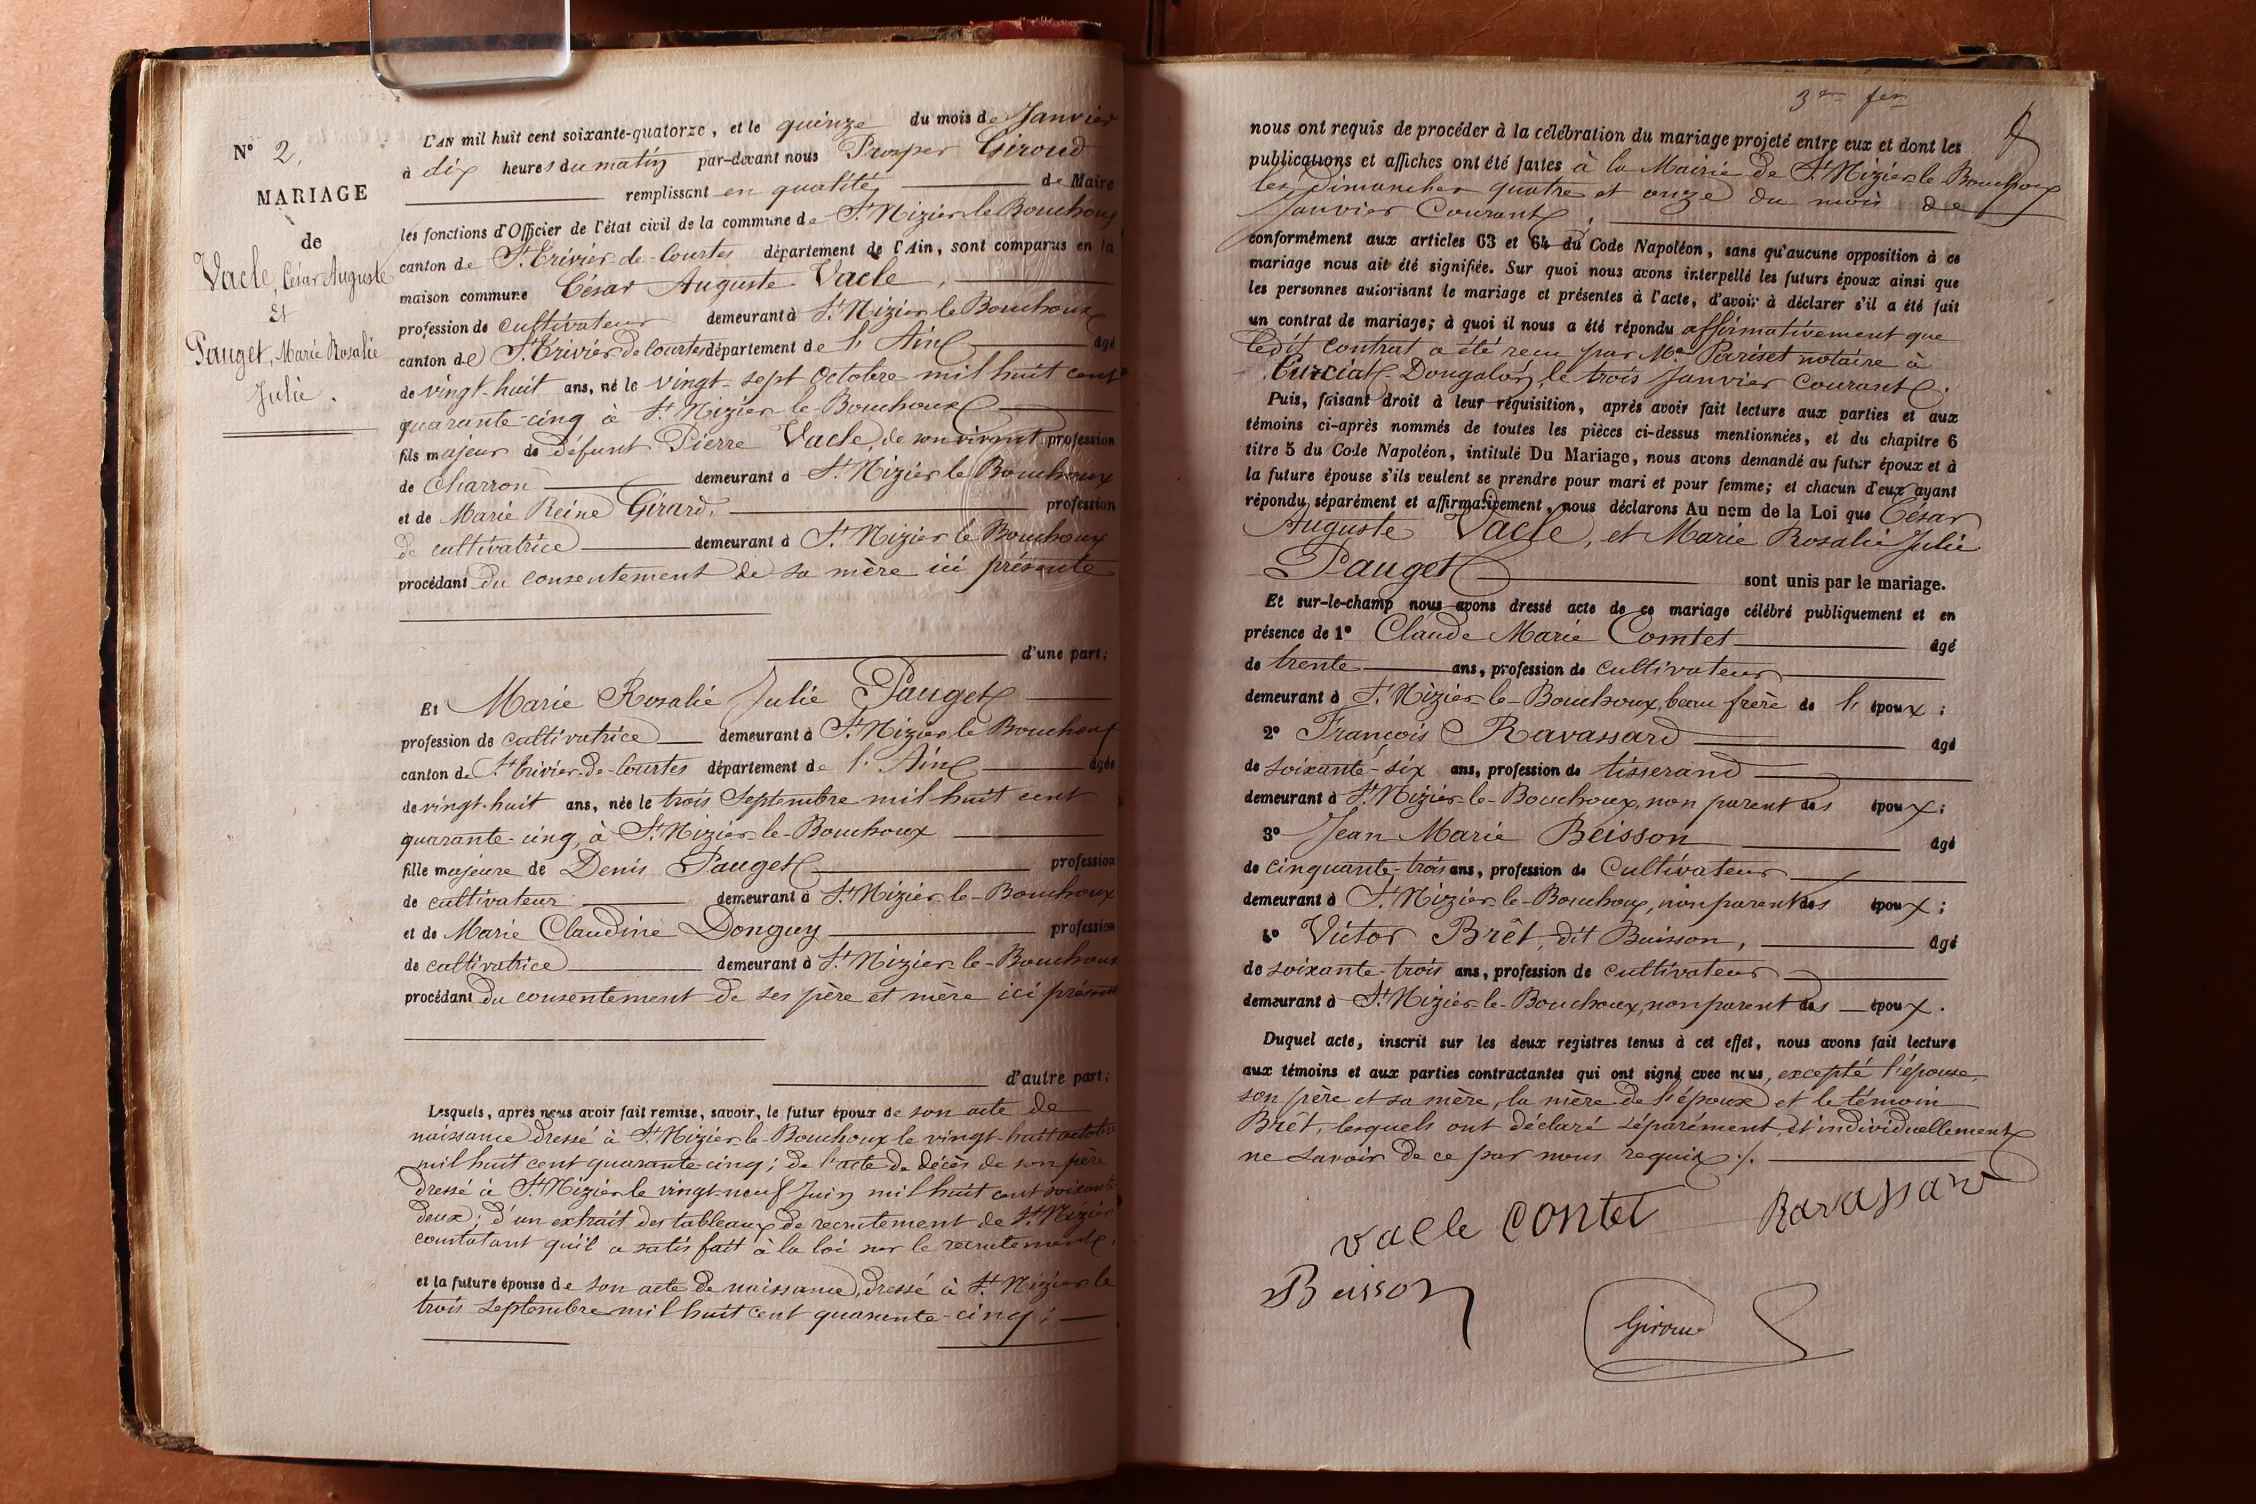 N° 2.
MARIAGE
de
Vacle, César Auguste
Et
Pauget, Marie Rosalie
Julie.
L'AN mil huit cent soixante-quatorze, et le quinze du mois de Janvier
à dix heures du matin par-devant nous Prosper Giroud
remplissant en qualité de Maire
les fonctions d'Officier de l'état civil de la commune de St Nizier le Bouchoux
canton de St Trivier-de-Courtes département de l'Ain, sont comparus en la
maison commune César Auguste Vacle,
profession de cultivateur demeurant à St Nizier le Bouchoux
canton de St Trivier de Courtes département de l'Ain âgé
de vingt-huit ans, né le vingt-sept Octobre mil huit cent
quarante-cinq à St Nizier-le-Bouchoux
fils majeur de défunt Pierre Vacle de son vivant profession
de Charron demeurant à St Nizier le Bouchoux
et de Marie Reine Girard, profession
de cultivatrice demeurant à St Nizier le Bouchoux
procédant du consentement de sa mère ici présente
d'une part;
Et Marie Rosalie Julie Pauget
profession de cultivatrice demeurant à St Nizier le Bouchoux
canton de St Trivier-de-Courtes département de l'Ain âgée
de vingt-huit ans, née le trois Septembre mil huit cent
quarante-cinq, à St Nizier-le-Bouchoux
fille majeure de Denis Pauget profession
de cultivateur demeurant à St Nizier-le-Bouchoux
et de Marie Claudine Donguy profession
de cultivatrice demeurant à St Nizier-le-Bouchoux
procédant du consentement de ses père et mère ici présents
d'autre part;
Lesquels, après nous avoir fait remise, savoir, le futur époux de son acte de
naissance dressé à St Nizier-le-Bouchoux le vingt-huit octobre
mil huit cent quarante cinq; de l'acte de décès de son père
dressé à St Nizier le vingt-neuf Juin mil huit cent soixante
deux; d'un extrait des tableaux de recrutement de St Nizier
constatant qu'il a satisfait à la loi sur le recrutement.
et la future épouse de son acte de naissance, dressé à St Nizier le
trois septembre mil huit cent quarante-cinq;
nous ont requis de procéder à la célébration du mariage projeté entre eux et dont les
publications et affiches ont été faites à la Mairie de St Nizier-le Bouchoux
les dimanches quatre et onze du mois de
Janvier Courant.
conformément aux articles 63 et 64 du Code Napoléon, sans qu'aucune opposition à ce
mariage nous ait été signifiée. Sur quoi nous avons interpellé les futurs époux ainsi que
les personnes autorisant le mariage et présentes à l'acte, d'avoir à déclarer s'il a été fait
un contrat de mariage; à quoi il nous a été répondu affirmativement que
ledit contrat a été reçu par Me Pariset notaire à
Curciat-Dongalon, le trois Janvier courant.
Puis, faisant droit à leur réquisition, après avoir fait lecture aux parties et aux
témoins ci-après nommés de toutes les pièces ci-dessus mentionnées, et du chapitre 6
titre 5 du Code Napoléon, intitulé Du Mariage, nous avons demandé au futur époux et à
la future épouse s'ils veulent se prendre pour mari et pour femme; et chacun d'eux ayant
répondu séparément et affirmativement, nous déclarons Au nom de la Loi que César
Auguste Vacle, et Marie Rosalie Julie
Pauget sont unis par le mariage.
Et sur-le-champ nous avons dressé acte de ce mariage célébré publiquement et en
présence de 1° Claude Marie Comtet âgé
de trente ans, profession de cultivateur
demeurant à St Nizier-le-Bouchoux, beau frère de l'époux;
2° François Ravassard âgé
de soixante-six ans, profession de tisserand
demeurant à St Nizier-le-Bouchoux, non parent des époux;
3° Jean Marie Beisson âgé
de cinquante-trois ans, profession de Cultivateur
demeurant à St Nizier-le-Bouchoux, non parent des époux;
4° Victor Brêt, dit Buisson, âgé
de soixante-trois ans, profession de cultivateur
demeurant à St Nizier-le-Bouchoux, non parent des époux.
Duquel acte, inscrit sur les deux registres tenus à cet effet, nous avons fait lecture
aux témoins et aux parties contractantes qui ont signé avec nous, excepté l'épouse,
son père et sa mère, la mère de l'époux et le témoin
Brêt, lesquels ont déclaré séparément et individuellement
ne savoir de ce par nous requis ./.
vacle contet Ravassard
Beisson
Giroud